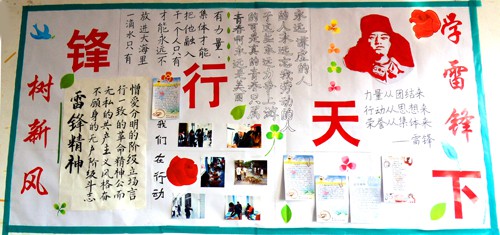 学雷锋
树新风
锋
行
天
下
一滴水只有
放进大海里
才能永远不
干一个人只有
把他融入
集体才能
有力量
青春啊永远是美
的可是真的青春只属
于这些永远力争上游
永远忘我劳动的人
永远谦虚的人
力量从团结来
行动从思想来
荣誉从集体来
——雷锋
憎爱分明的阶级立场言
行一致的革命精神公而
无私的共产主义风格奋
不顾身的无产阶级斗志
雷锋精神
我们在行动